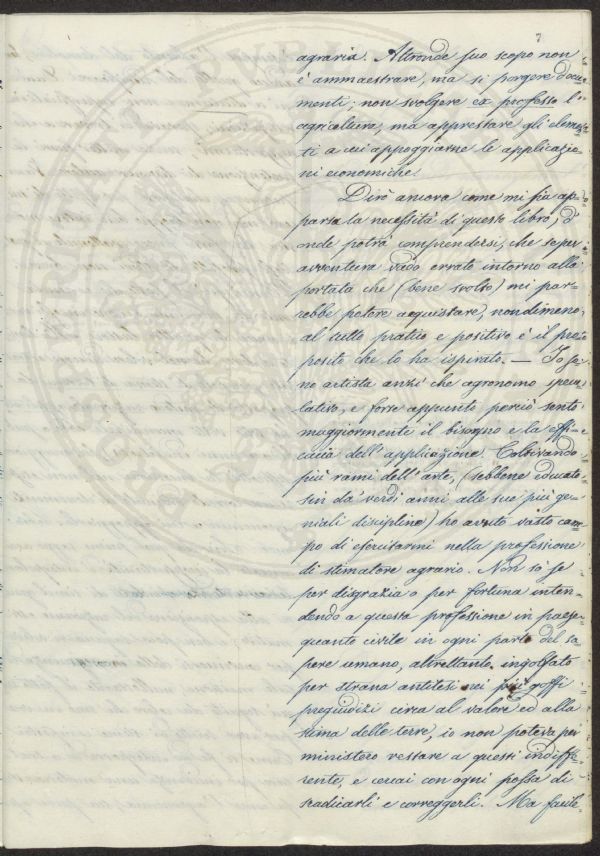 7
agraria. Altronde suo scopo non
è ammaestrare, ma si porgere docu-
menti; non svolgere ex professo l'
agricoltura, ma apprestare gli elemen-
ti a cui appoggiarne le applicazio-
ni economiche.
Dirò ancora come mi sia ap-
parsa la necessità di questo libro, d'
onde potrà comprendersi, che se per
avventura vado errato intorno alla
portata che (bene svolto) mi par-
rebbe potere acquistare, nondimeno
al tutto pratico e positivo è il pro-
posito che lo ha ispirato. — Io so-
no artista anzi che agronomo specu-
lativo, e forse appunto perciò sento
maggiormente il bisogno e la effi-
cacia dell'applicazione. Coltivando
più rami dell'arte, (sebbene educato
sin da' verdi anni alle sue più ge-
niali discipline) ho avuto vasto cam-
po di esercitarmi nella professione
di stimatore agrario. Non so se
per disgrazia o per fortuna inten-
dendo a questa professione in paese
quanto civile in ogni parte del sa-
pere umano, altrettanto ingolfato
per strana antitesi nei più goffi
pregiudizi circa al valore ed alla
stima delle terre, io non poteva per
ministero restare a questi indiffe-
rente, e cercai con ogni possa di
sradicarli e correggerli. Ma facile-